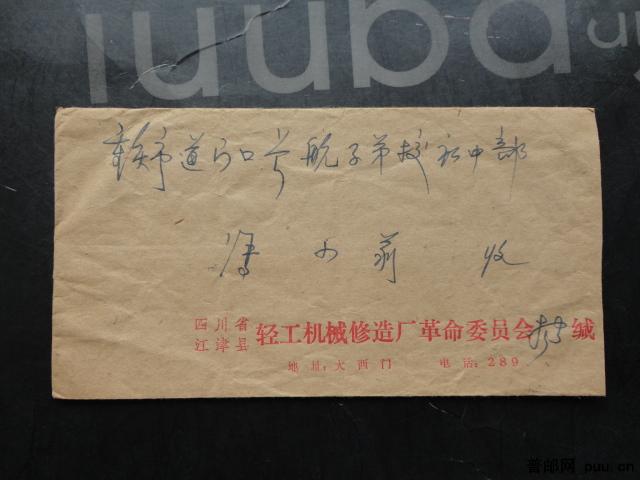 重庆市道门口 航子弟校初中部
小 收
四川省
江津县
轻工机械修造厂革命委员会 缄
地址:大西门 电话:289
普邮网 puu.cn